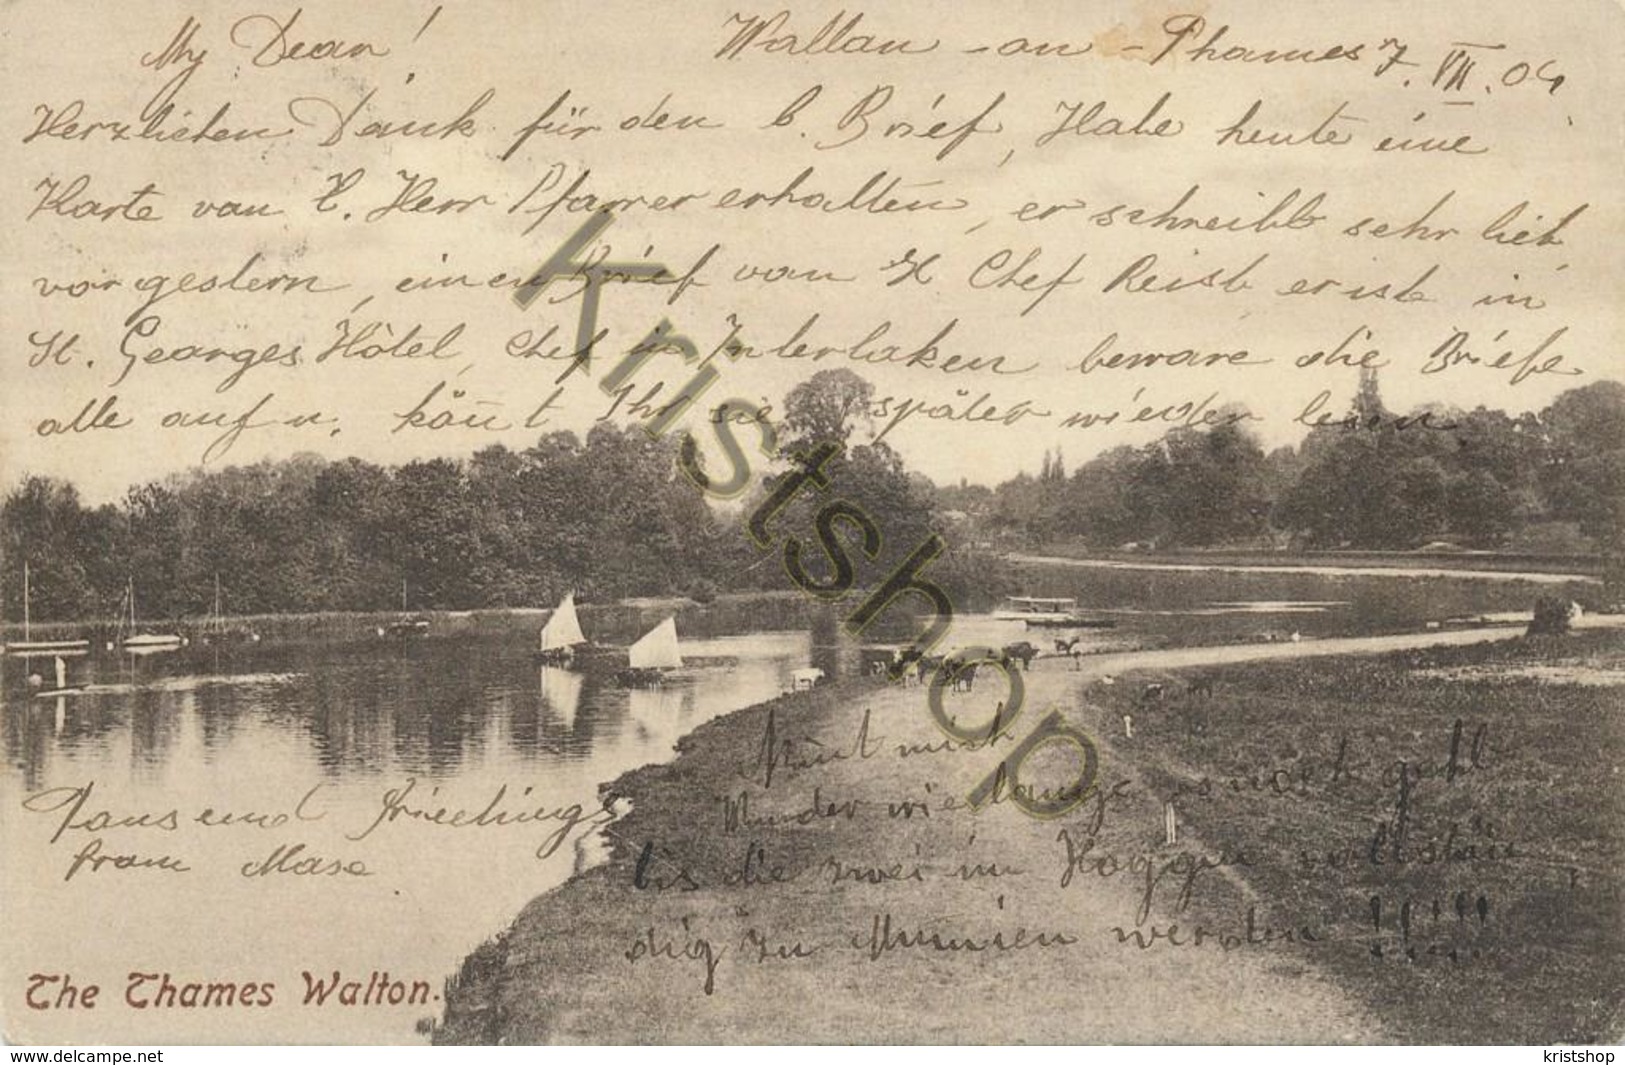 My Dear!
Walton - on - Thames 7. VII. 04
Herzlichen Dank für den l. Brief, Habe heute eine
Karte von H. Herr Pfarrer erhalten, er schreibt sehr lieb,
vorgestern, einen Brief von H Chef Reist er ist in
St. Georges Hôtel, Chef in Interlaken beware die Briefe
alle auf u. könt Ihr sie später wieder lesen.
Nimt mich
Wunder wie lange es noch geht
bis die zwei im Hoggen vollstän
dig zu Mumien werden !!!!!
Tausend
from Masa
The Thames Walton.
Kristshop
delcampe.net
kristshop